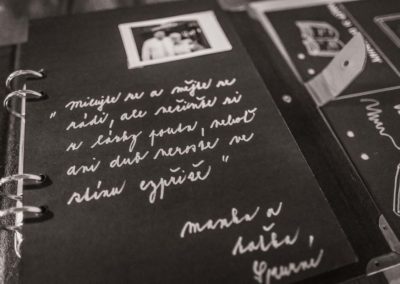 "Milujte se a mějte se
rádi, ale nečiňte si
z lásky pouta, neboť
ani dub neroste ve
stínu cypřiše"
mamka a
taťka,